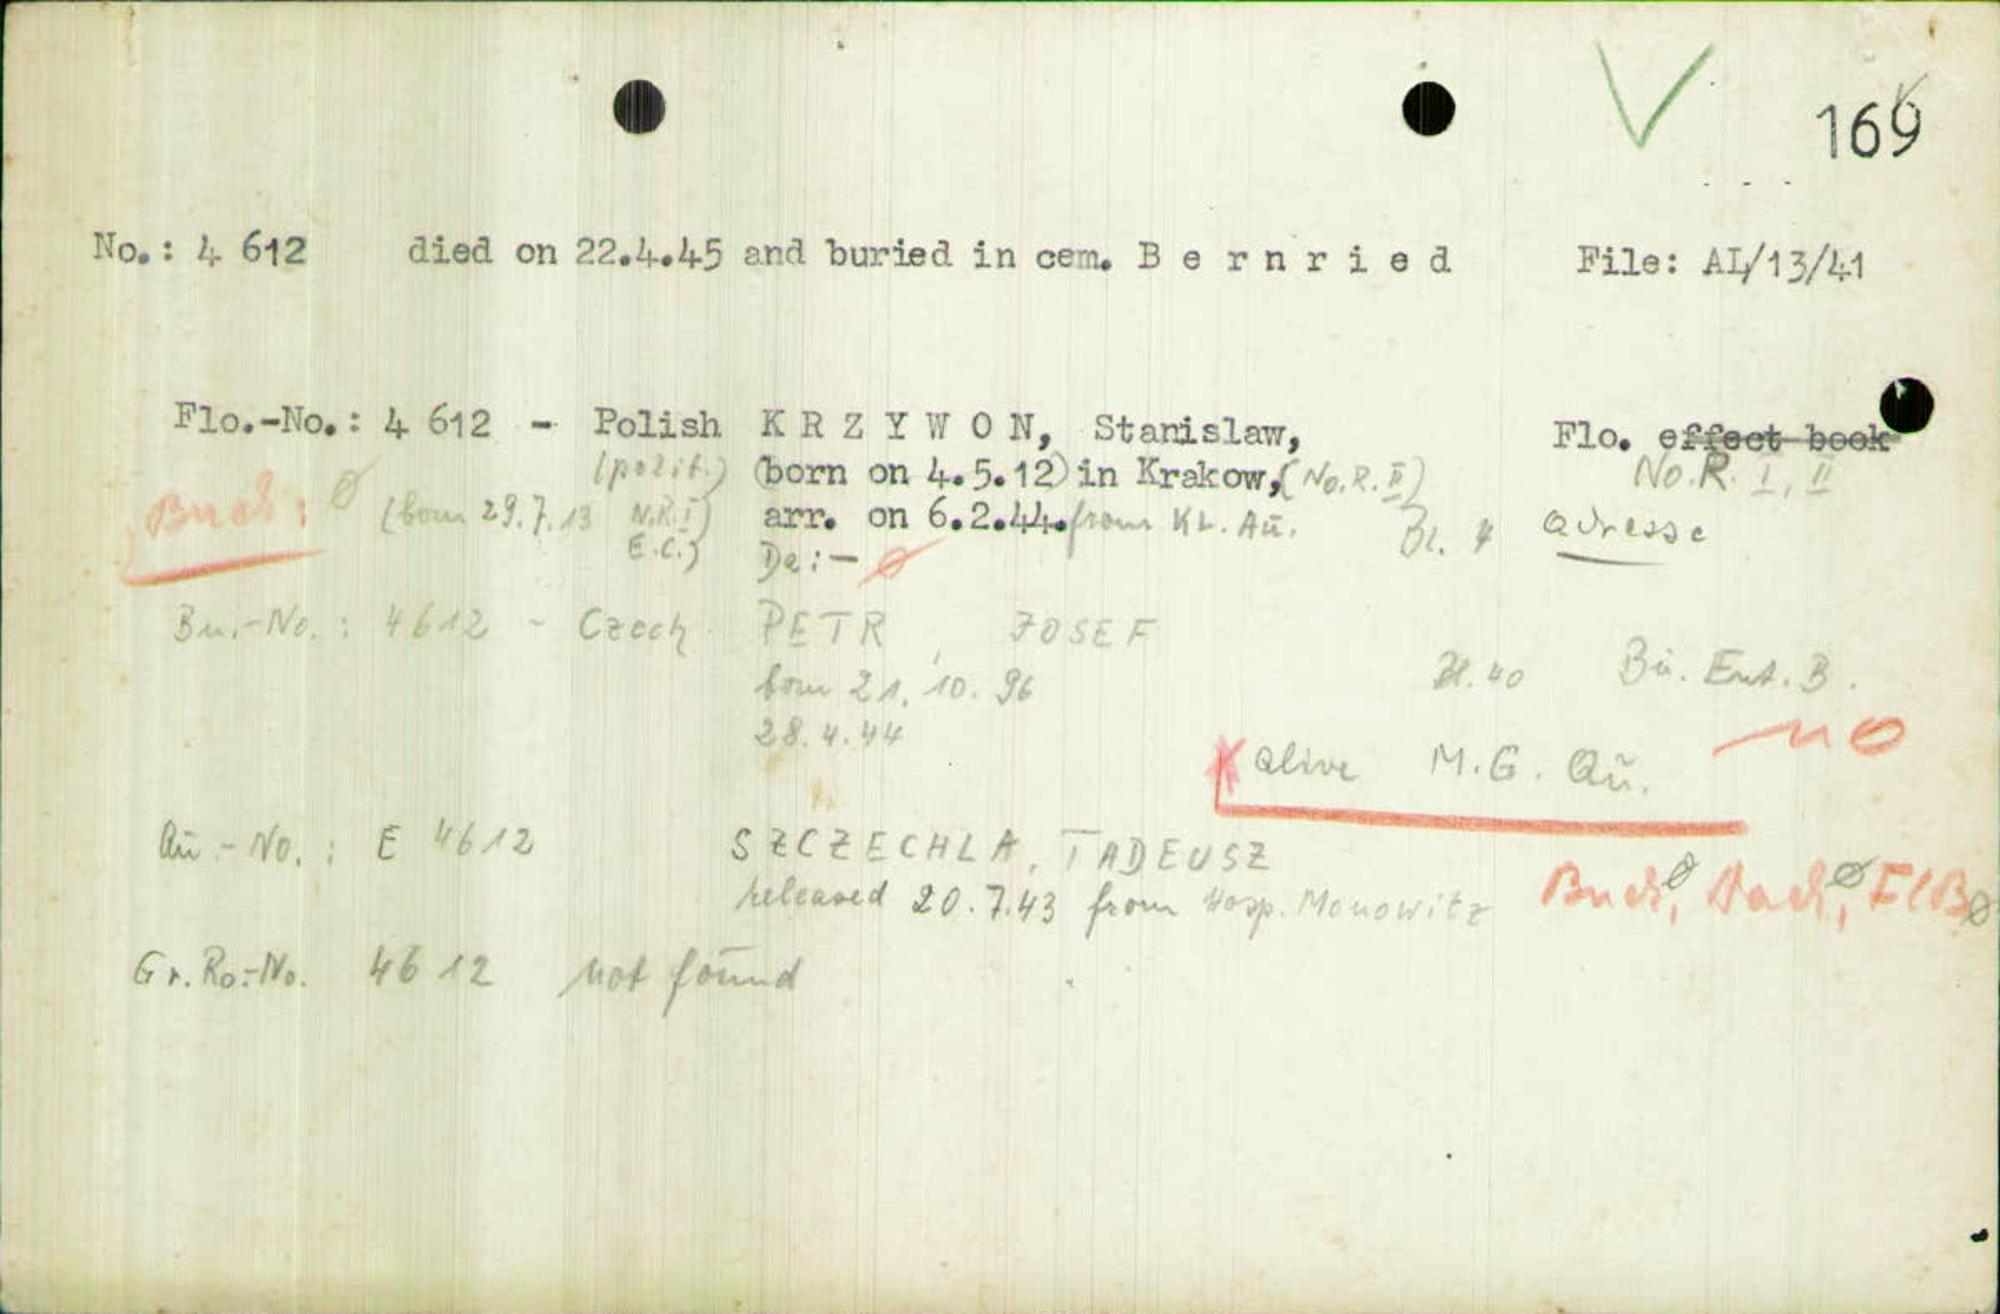 169
No.: 4 612 died on 22.4.45 and buried in cem. B e r n r i e d File: AL/13/41
Flo.-No.: 4 612 - Polish K R Z Y W O N, Stanislaw, Flo. effect book
(polit.) (born on 4.5.12) in Krakow, (No.R.II) No.R. I, II
Buch: ø (born 29.7.13 N.R.I) arr. on 6.2.44. from KL. Au. Bl. 4 adresse
E.C.) Da:- ø
Bu.-No.: 4612 - Czech PETR, JOSEF
born 21.10.96 Bl.40 Bu. Ent. B.
28.4.44 no
x alive M.G. Au.
Au.-No.: E 4612 SZCZECHLA, TADEUSZ
released 20.7.43 from Hosp. Monowitz Buch ø, Dach ø, FlB ø
Gr.Ro.-No. 4612 not found